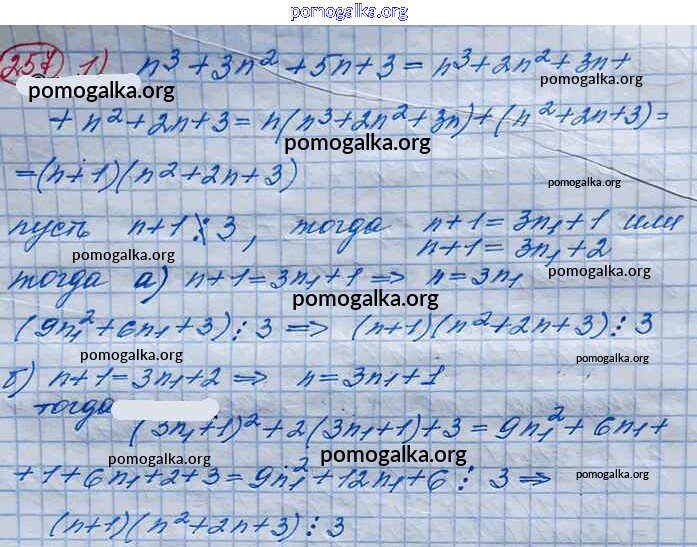 pomogalka.org
257 1) n³ + 3n² + 5n + 3 = n³ + 2n² + 3n +
pomogalka.org pomogalka.org
+ n² + 2n + 3 = n(n³ + 2n² + 3n) + (n² + 2n + 3) =
pomogalka.org
= (n + 1)(n² + 2n + 3)
pomogalka.org
пусть n + 1 ⋮̸ 3, тогда n + 1 = 3n₁ + 1 или
n + 1 = 3n₁ + 2
pomogalka.org pomogalka.org
тогда а) n + 1 = 3n₁ + 1 => n = 3n₁
pomogalka.org
(9n₁² + 6n₁ + 3) ⋮ 3 => (n+1)(n² + 2n + 3) ⋮ 3
pomogalka.org pomogalka.org
б) n + 1 = 3n₁ + 2 => n = 3n₁ + 1
тогда
(3n₁ + 1)² + 2(3n₁ + 1) + 3 = 9n₁² + 6n₁ +
pomogalka.org pomogalka.org
+ 1 + 6n₁ + 2 + 3 = 9n₁² + 12n₁ + 6 ⋮ 3 =>
pomogalka.org
(n + 1)(n² + 2n + 3) ⋮ 3
pomogalka.org pomogalka.org